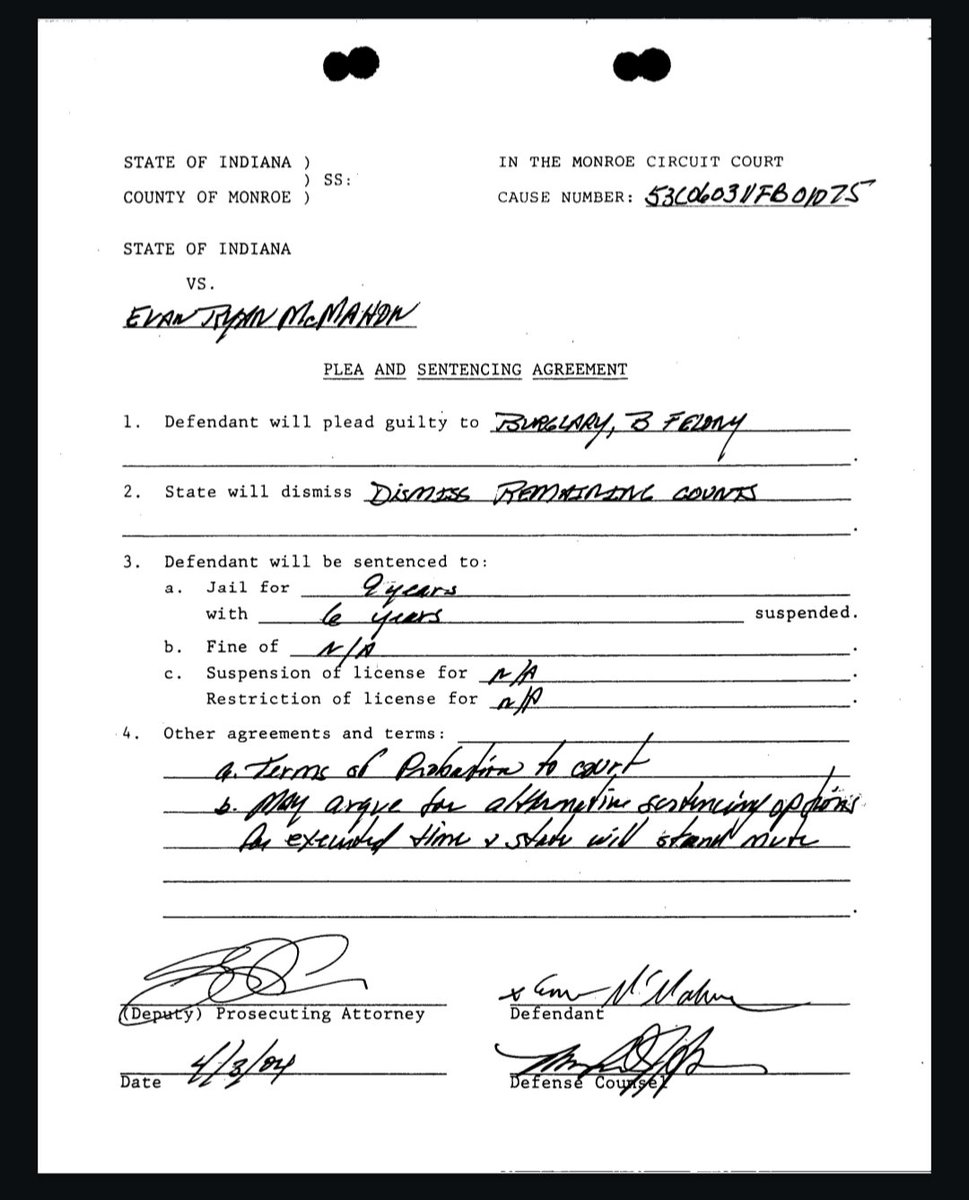 STATE OF INDIANA ) IN THE MONROE CIRCUIT COURT
) SS:
COUNTY OF MONROE ) CAUSE NUMBER: 53C060311FB01075
STATE OF INDIANA
VS.
EVAN RYAN McMAHON
PLEA AND SENTENCING AGREEMENT
1. Defendant will plead guilty to BURGLARY, B FELONY
.
2. State will dismiss DISMISS REMAINING COUNTS
.
3. Defendant will be sentenced to:
a. Jail for 9 years
with 6 years suspended.
b. Fine of N/A.
c. Suspension of license for n/A.
Restriction of license for n/A.
4. Other agreements and terms:
a. Terms of Probation to court
b. May argue for alternative sentencing options
for executed time & state will stand mute
.
x Evan McMahon
(Deputy) Prosecuting Attorney Defendant
Date 4/3/04
Defense Counsel